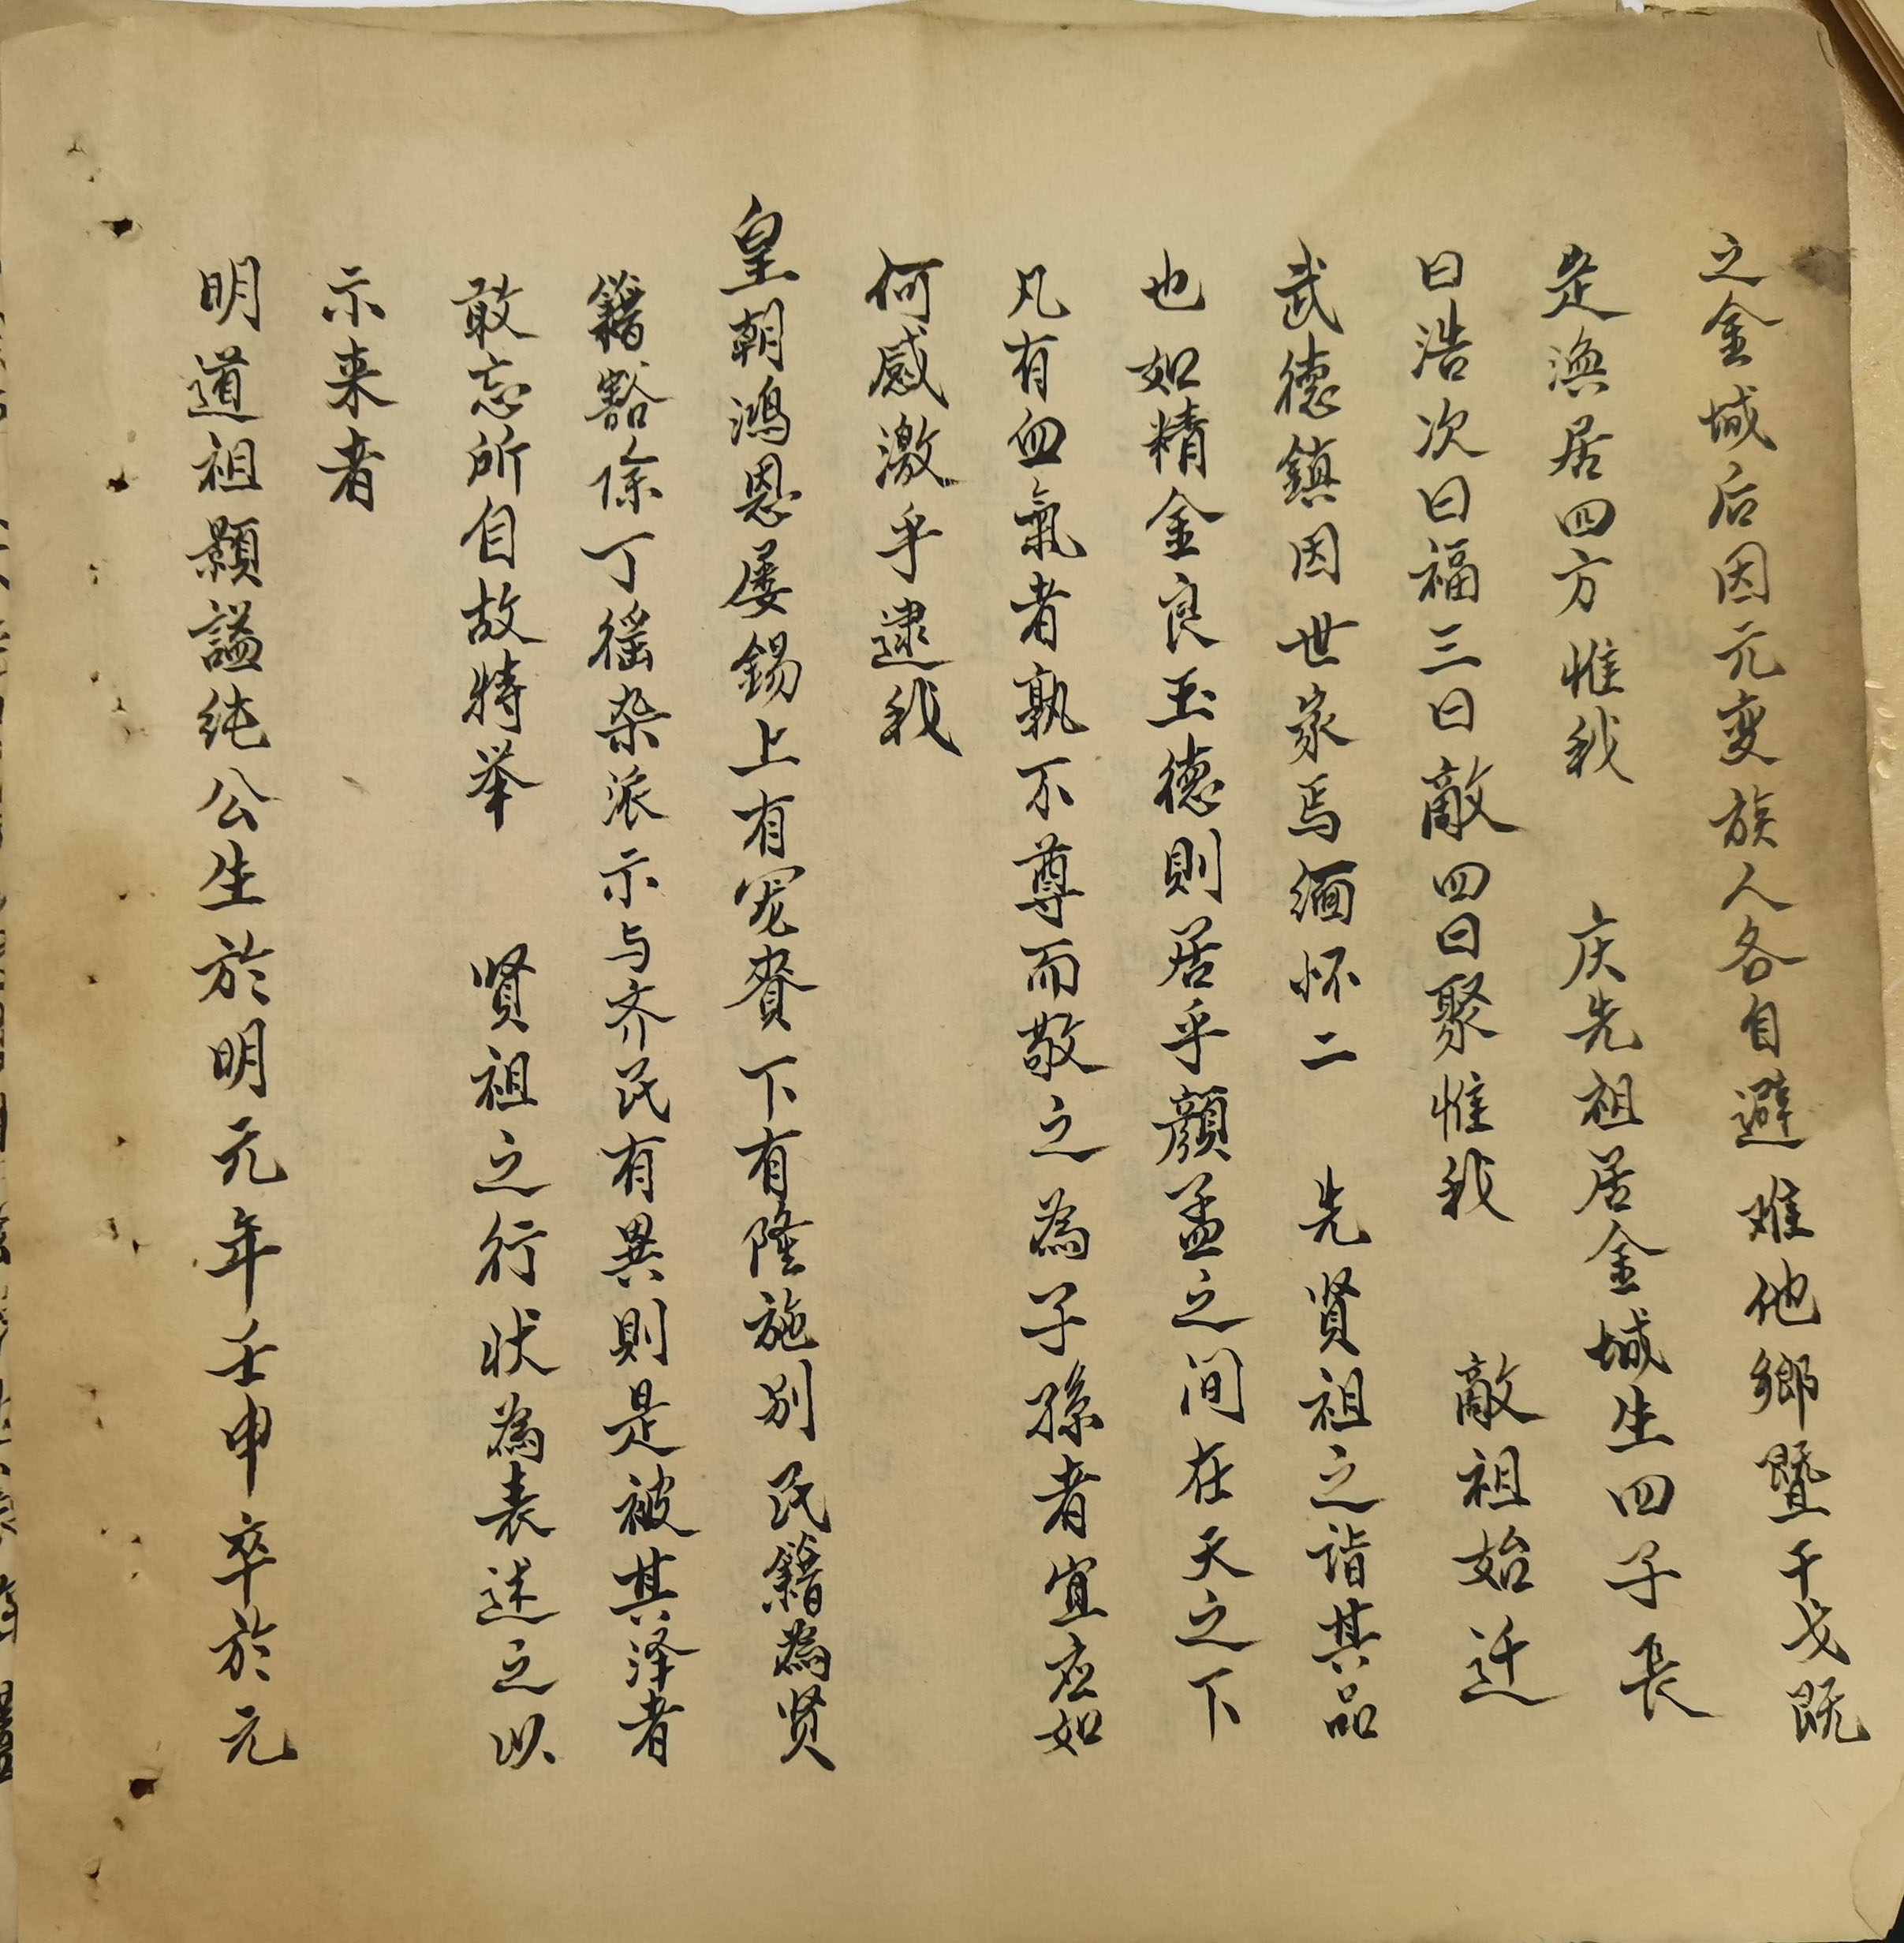 之金城后因元变族人各自避难他鄉暨干戈既
定渙居四方惟我 庆先祖居金城生四子長
曰浩次曰福三曰敵四曰聚惟我 敵祖始迁
武德鎮因世家焉缅怀二 先贤祖之诣其品
也如精金良玉德則居乎顏孟之间在天之下
凡有血氣者孰不尊而敬之為子孫者宜应如
何感激乎逮我
皇朝鴻恩屡錫上有宠赉下有隆施别民籍為贤
籍豁除丁徭杂派示与齐民有異則是被其泽者
敢忘所自故特举 贤祖之行状為表述之以
示来者
明道祖顥諡纯公生於明元年壬申卒於元